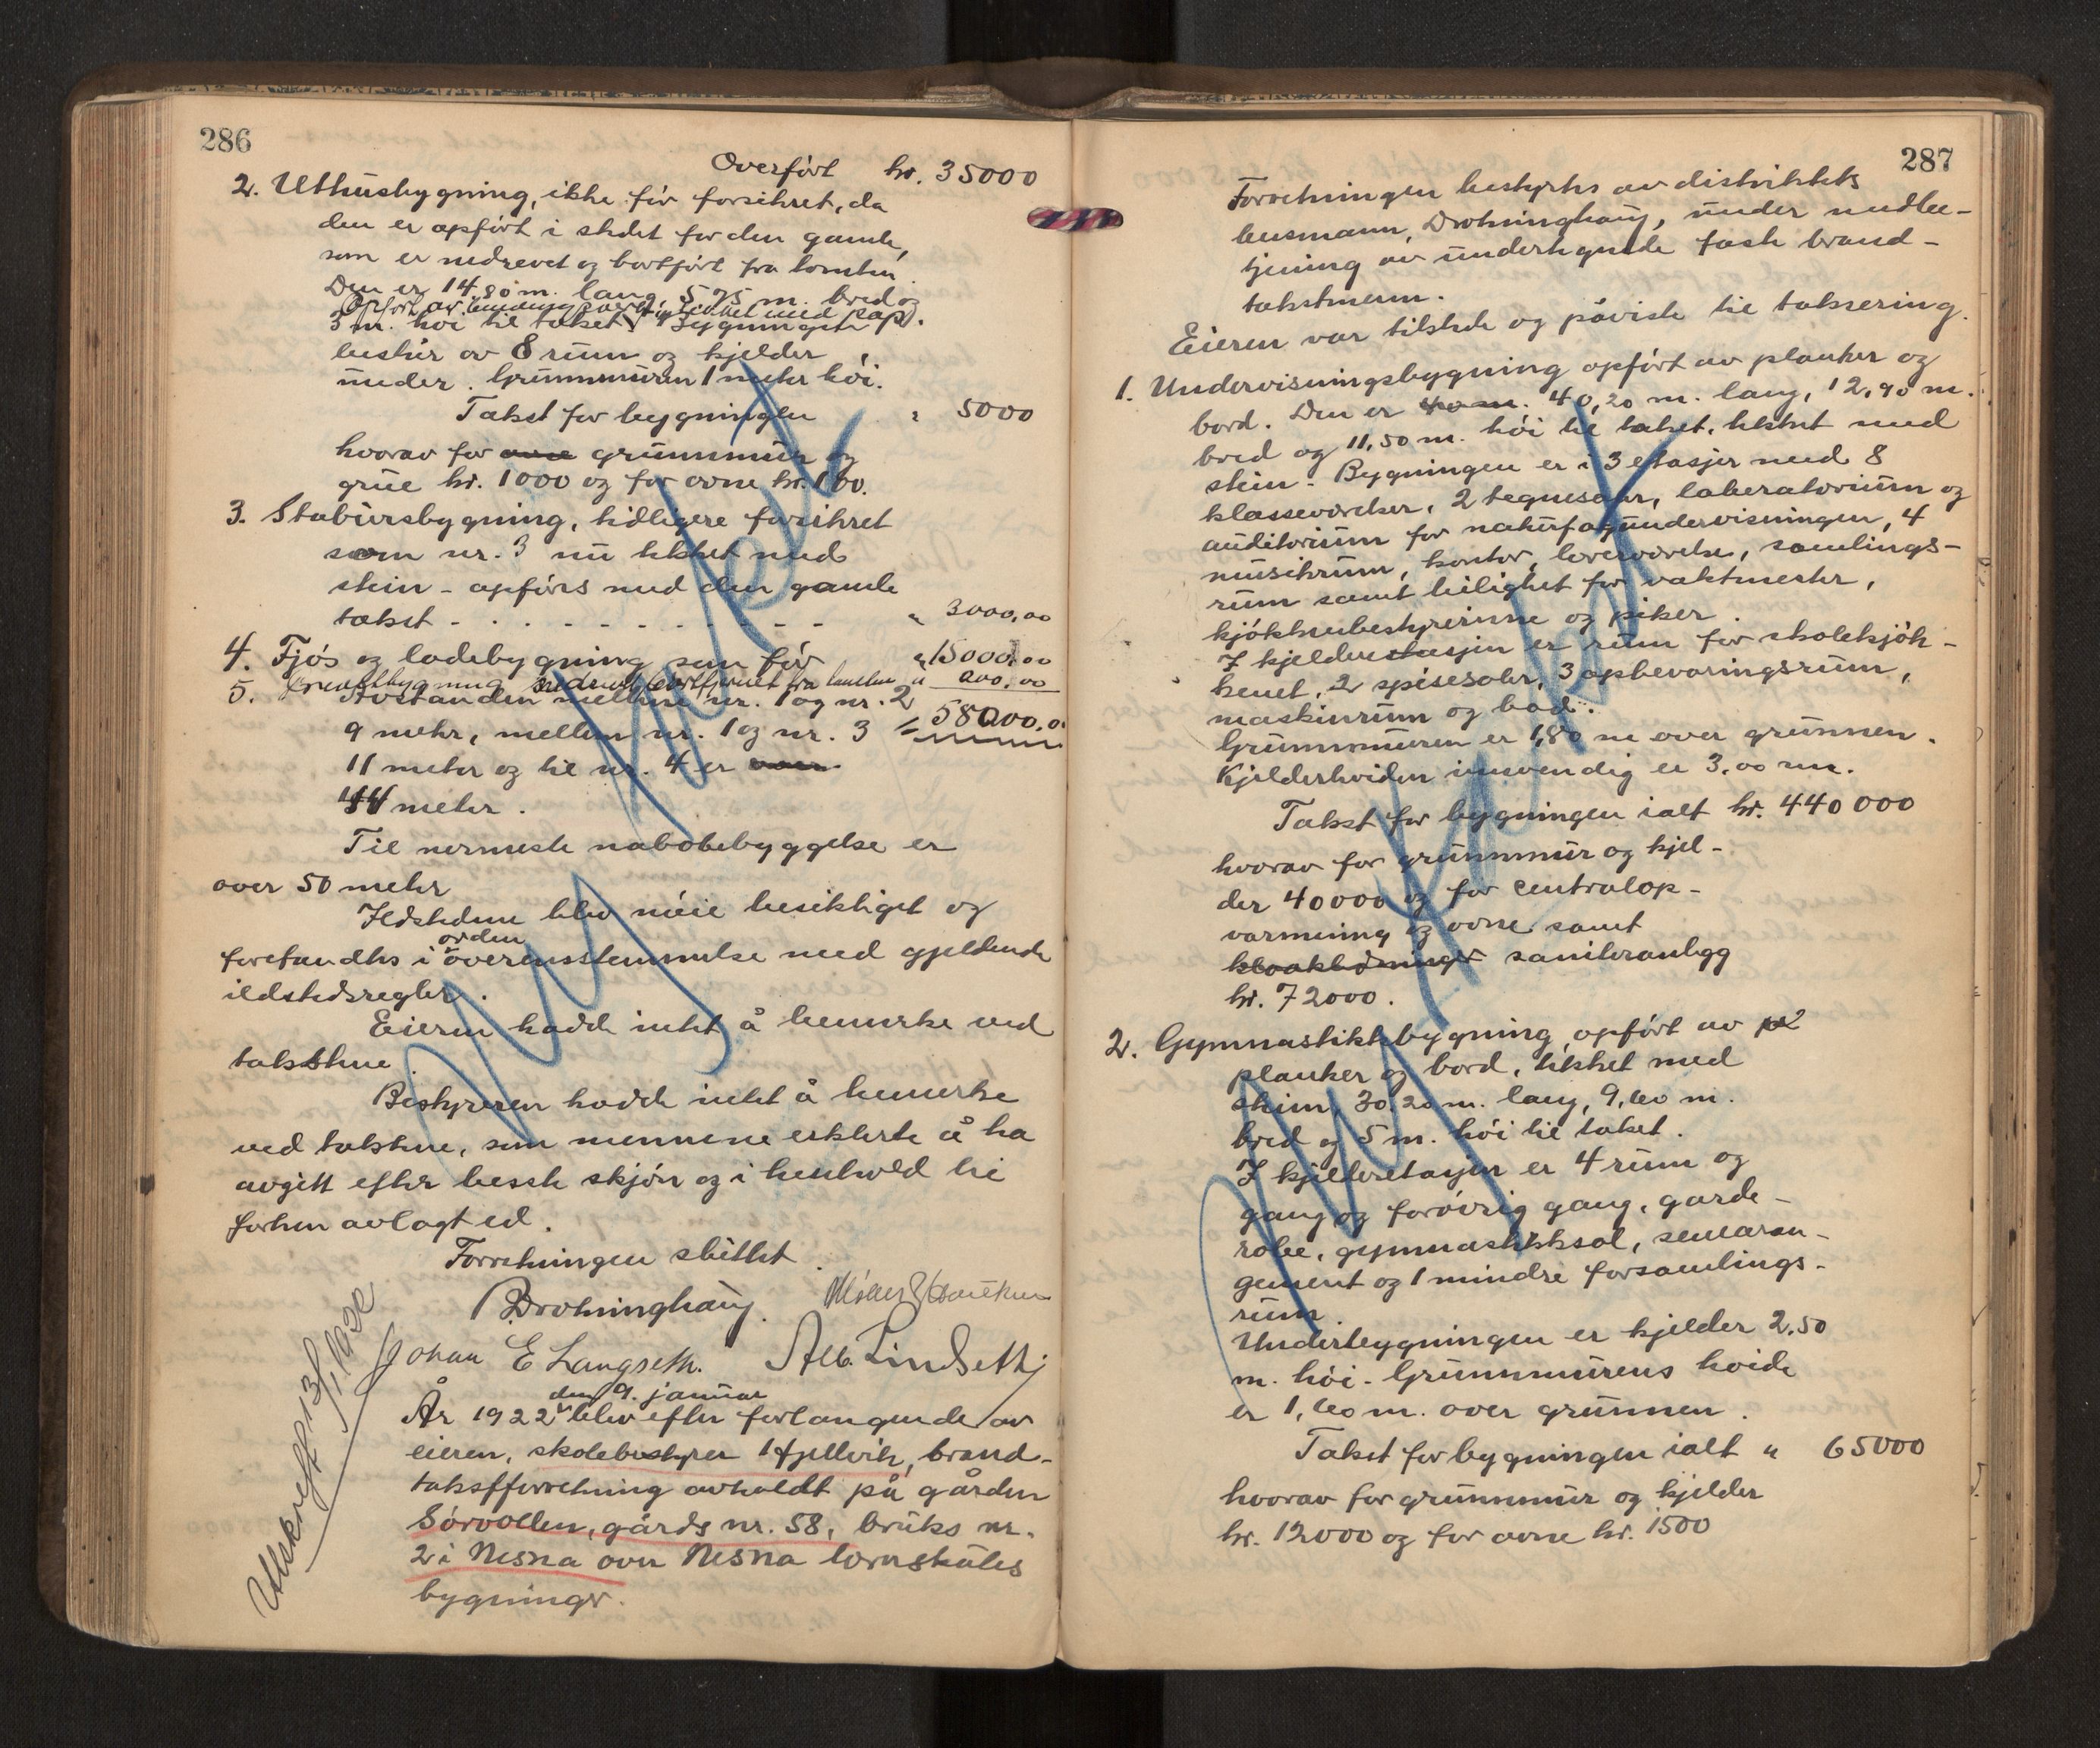 286
Overført kr. 35000
2. Uthusbygning, ikke før forsikret, da
den er opført i stedet for den gamle,
som er nedrevet og bortført fra tomten.
Den er 14,80 m. lang, 5,75 m. bred og
Opført av tømmer, tekket med pap.
3 m. høi til taket. Bygningen
består av 8 rum og kjelder
under. Grunnmuren 1 meter høi.
Takst for bygningen " 5000
hvorav for ovne grunnmur og
grue kr. 1000 og for ovne kr. 100.
3. Stabursbygning, tidligere forsikret
som nr. 3 nu tekket med
stein - opføres med den gamle
takst - - - - - - - - - " 3000,00
4. Fjøs og ladebygning som før " 15000,00
5. nedrevet, bortfjernet fra tomten "
Avstanden mellem nr. 1 og nr. 2
9 meter, mellem nr. 1 og nr. 3 58000,00
11 meter og til nr. 4 er
44 meter.
Til nermeste nabobebyggelse er
over 50 meter
Ildstedene blev nøie besiktiget og
orden
forefandtes i overensstemmelse med gjeldende
ildstedsregler.
Eieren hadde intet å bemerke ved
takstene.
Bestyreren hadde intet å bemerke
ved takstene, som mennene erklerte å ha
avgitt efter beste skjøn og i henhold til
forhen avlagt ed.
Forretningen sluttet.
B. Drotninghaug.
Johan E Langseth. Alb. Lindseth
Utskrevet 13/1 1922
den 9. januar
År 1922 blev efter forlangende av
eieren, skolebestyrer I Hjellvik, brand-
takstforretning avholdt på gården
Sørvollen, gårds nr. 58, bruks nr.
2 i Nesna over Nesna lærerskoles
bygninger.
287
Forretningen bestyrtes av distriktets
lensmann, Drotninghaug, under medbe-
tjening av undertegnede faste brand-
takstmenn.
Eieren var tilstede og påviste til taksering.
1. Undervisningsbygning opført av planker og
bord. Den er 40 m. 40,20 m. lang, 12,90 m.
bred og 11,50 m. høi til taket, tekket med
stein. Bygningen er i 3 etasjer med 8
klasseværelser, 2 tegnesaler, laberatorium og
auditorium for naturfagundervisningen, 4
musikrum, kontor, lærerværelse, samlings-
rum samt leilighet for vaktmester,
kjøkkenbestyrerinne og piker.
I kjelderetasjen er rum for skolekjøk-
kenet, 2 spisesaler, 3 opbevaringsrum,
maskinrum og bad.
Grunnmuren er 1,80 m over grunnen.
Kjelderhøiden innvendig er 3,00 m.
Takst for bygningen ialt kr. 440 000
hvorav for grunnmur og kjel-
der 40000 og for centralop-
varmning og ovne samt
kloakledninger saniteranlegg
kr. 72000.
2. Gymnastikkbygning opført av
planker og bord, tekket med
skim, 30,20 m. lang, 9,60 m.
bred og 5 m. høi til taket.
I kjelderetasjen er 4 rum og
gang og forøvrig gang, garde-
robe, gymnastikksal, scenearan-
gement og 1 mindre forsamlings-
rum.
Underbygningen er kjelder 2,50
m. høi. Grunnmurens høide
er 1,60 m. over grunnen.
Takst for bygningen ialt " 65000
hvorav for grunnmur og kjelder
kr. 12000 og for ovne kr. 1500